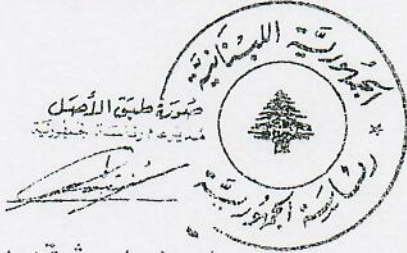 الجمهورية اللبنانية
رئاسة الجمهورية
صورة طبق الأصل
مديرية رئاسة الجمهورية